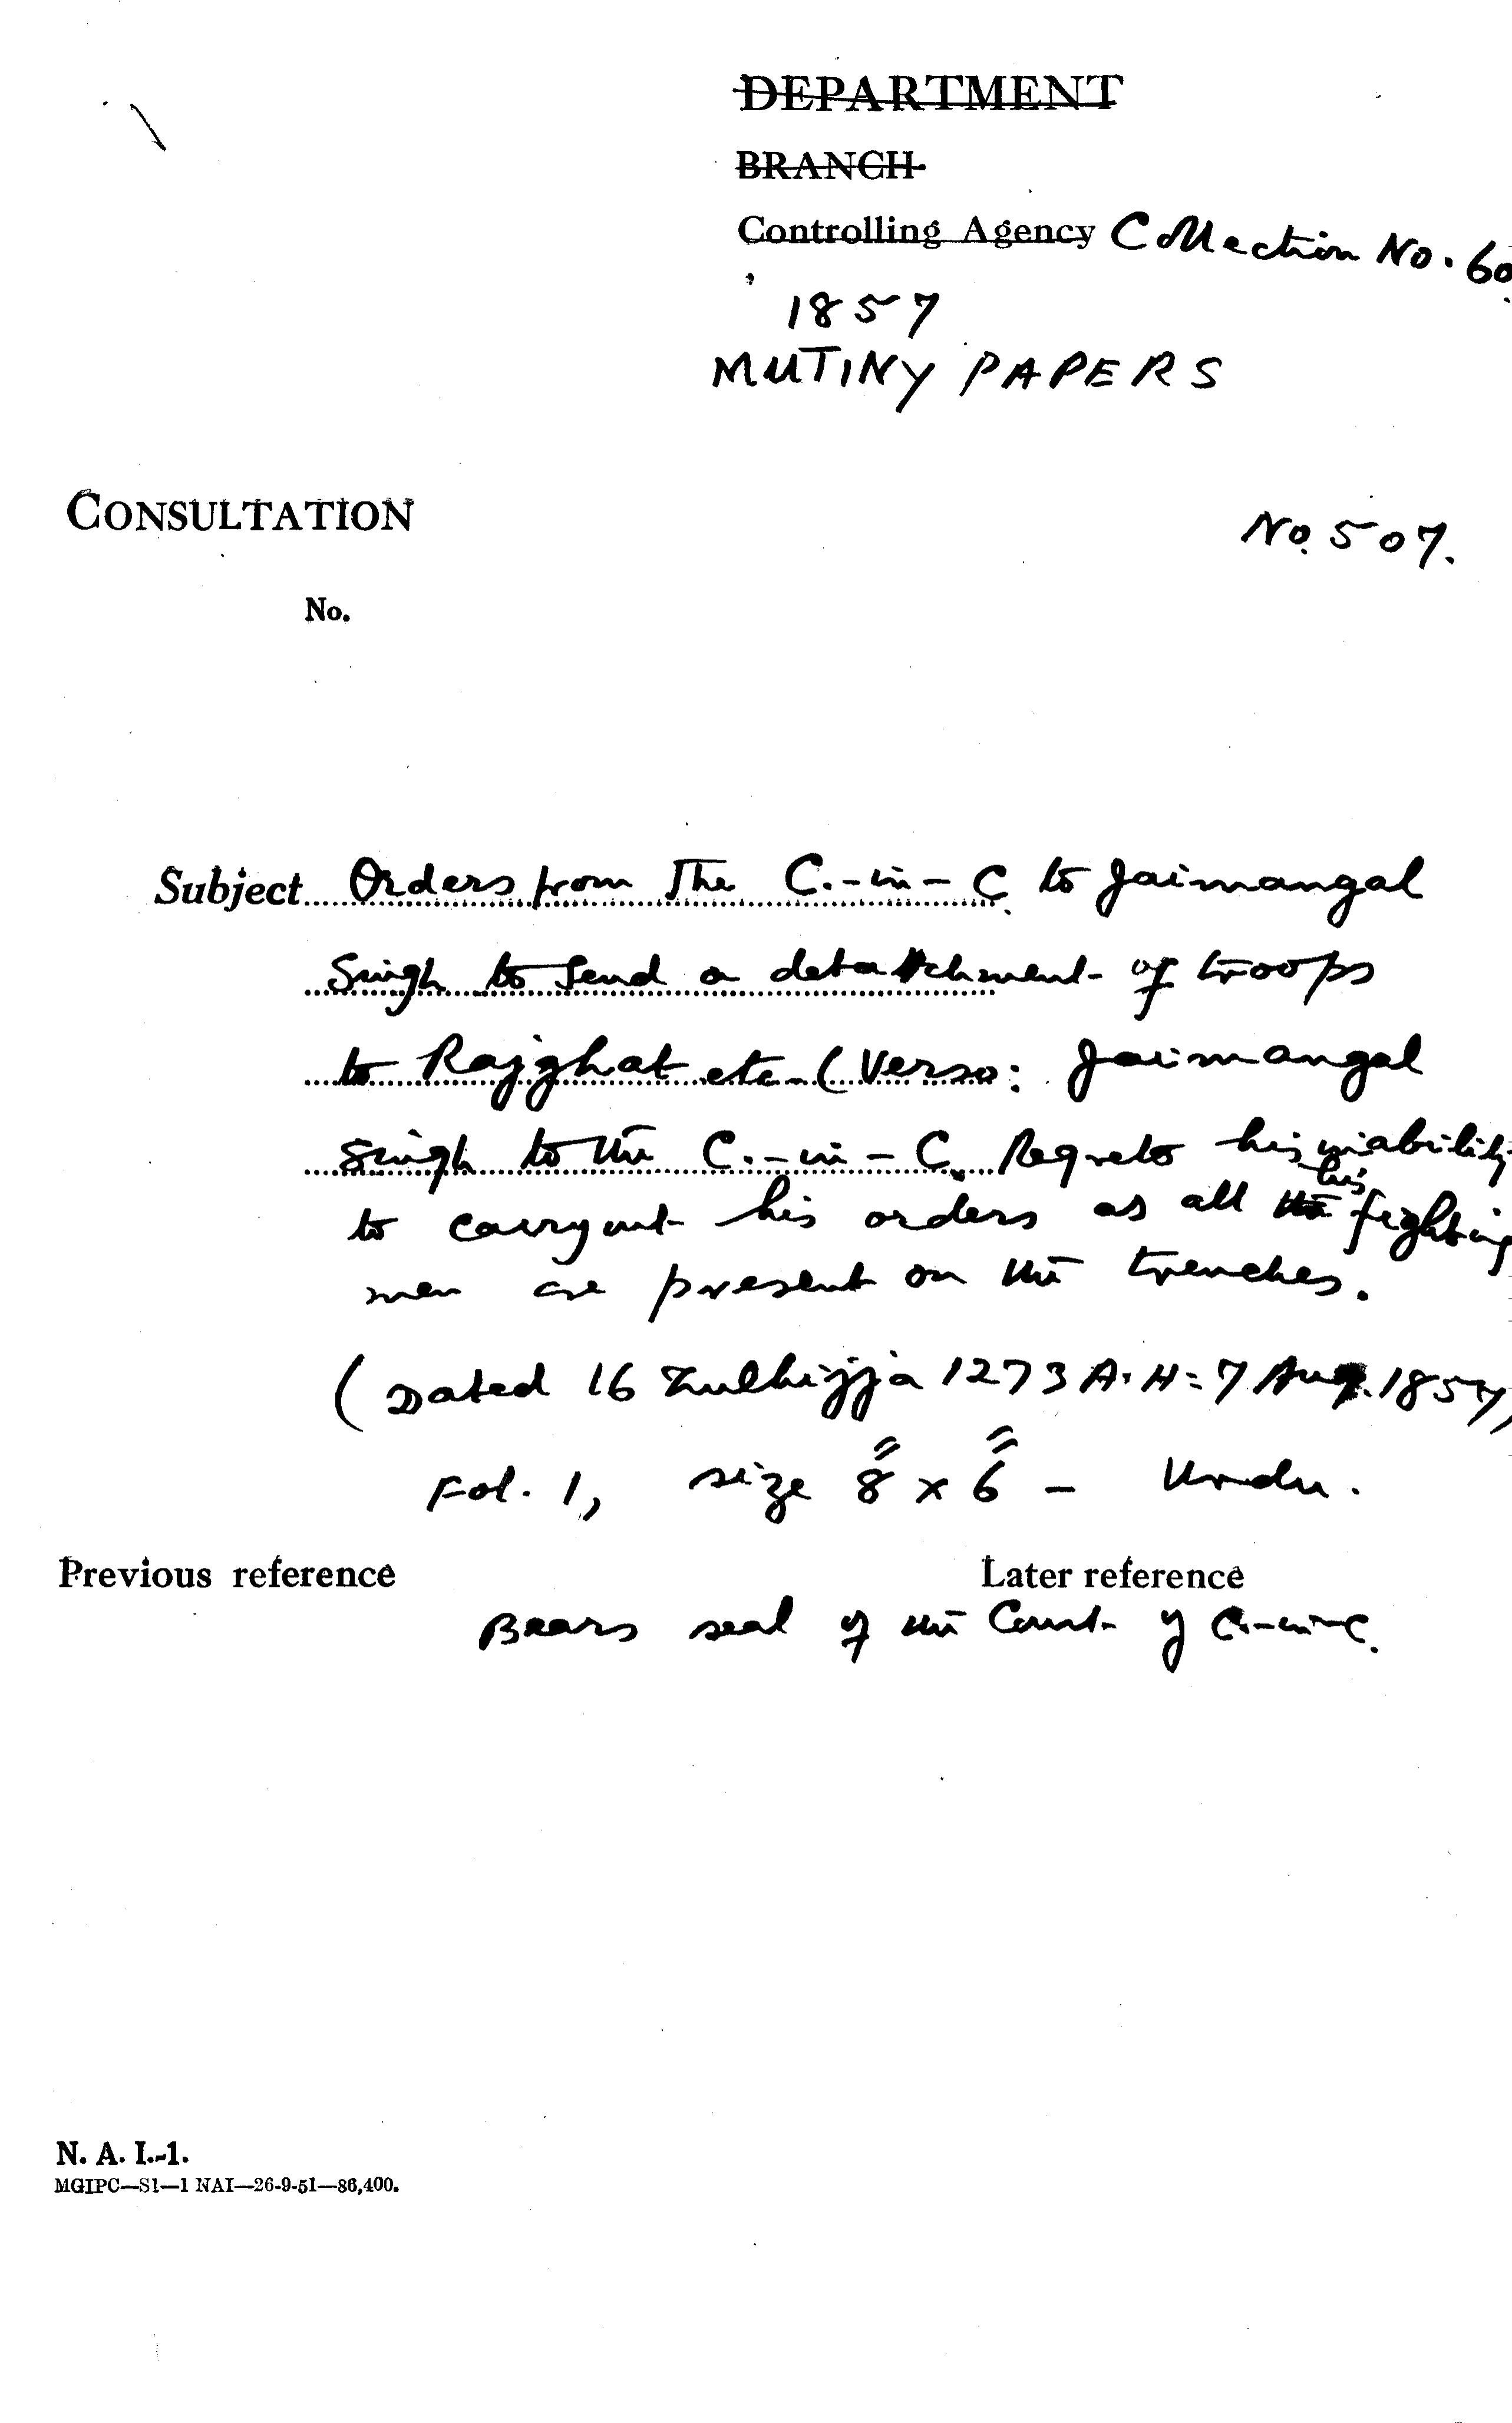 DEPARTMENT
BRANCH
Controlling Agency Collection No. 60
1857
MUTINY PAPERS
CONSULTATION
No. 507.
No.
Subject Orders from The C.-in-C. to Jaimangal
Singh to send a detatchment of troops
to Rajghat etc. (Verso: Jaimangal
Singh to the C.-in-C. Regrets his inability
to carry out his orders as all the his fighting
men are present on the trenches.
(Dated 16 Zulhijja 1273 A.H = 7 Aug. 1857)
Fol. 1, size 8" x 6" - Urdu.
Previous reference Later reference
Bears seal of the Court of C.-in-C.
N. A. I.-1.
MGIPC—S1—1 NAI—26-9-51—86,400.